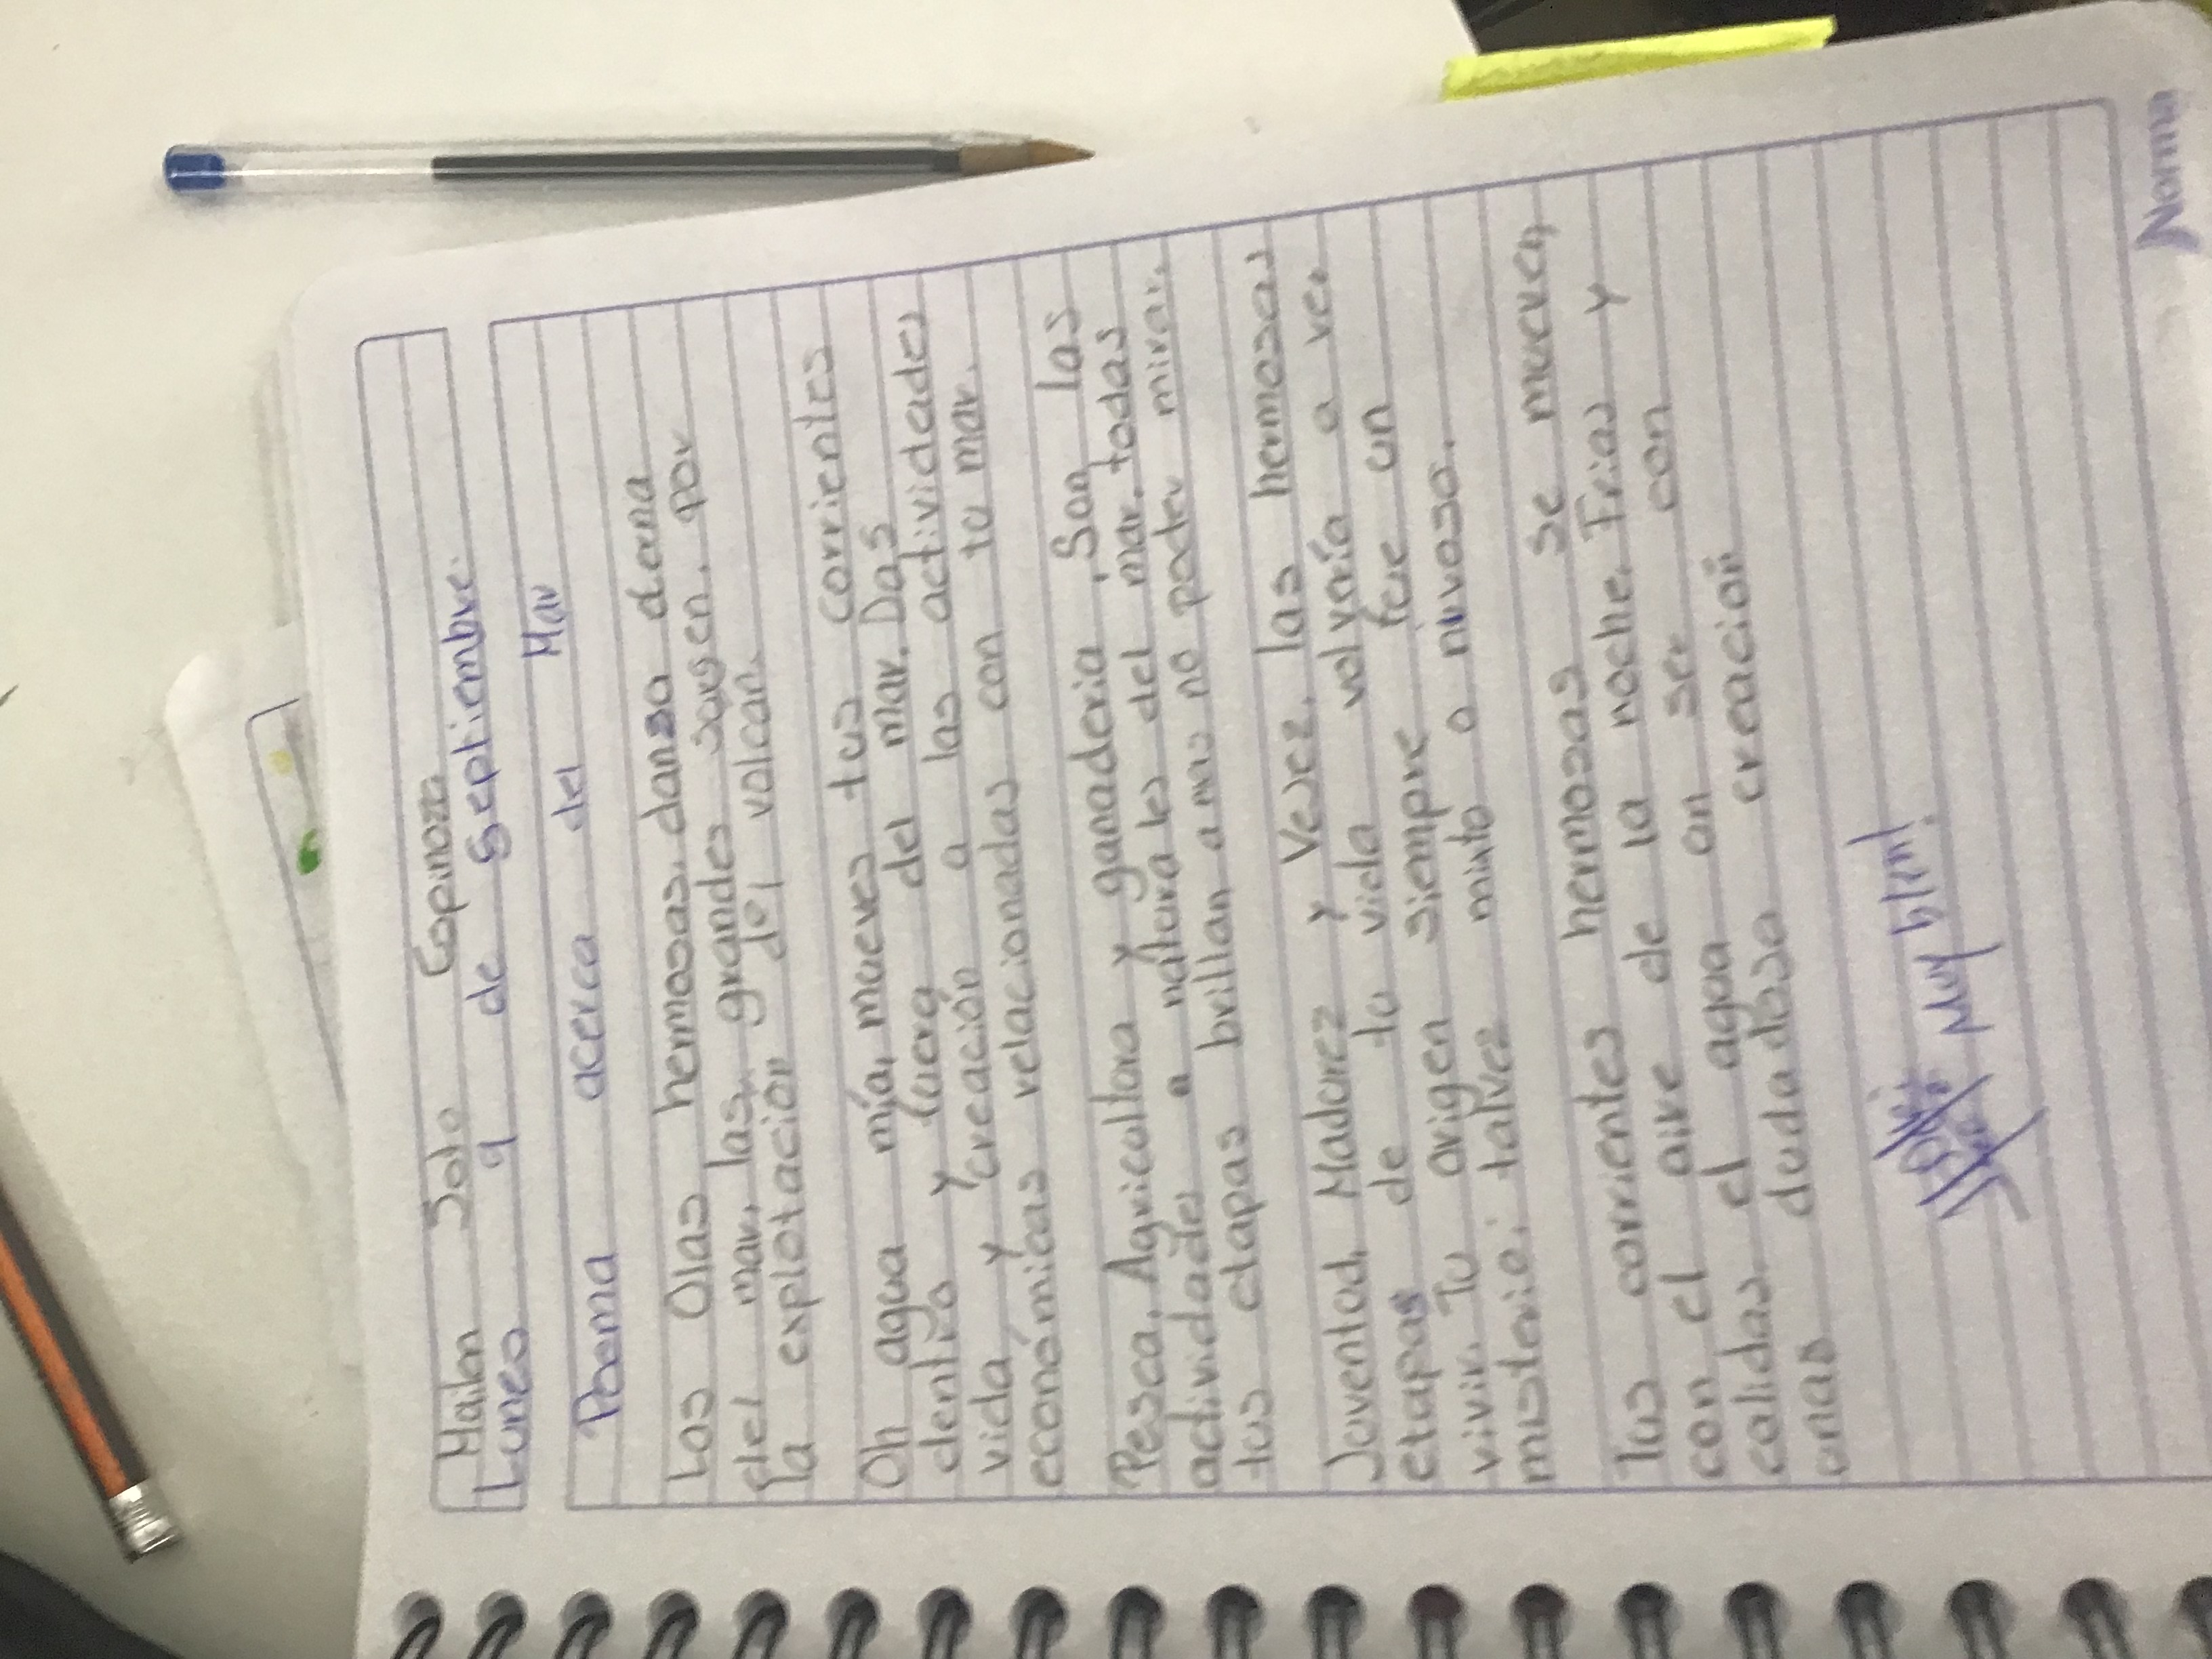 Mailon Soto Espinoza
Lunes 9 de Septiembre.
Poema acerca del Mar
Las Olas hermosas, danso dana
del mar, las grandes sargen. por
la explotación del volcan.
Oh agua mía, mueves tus corrientes
dentro y fuera del mar. Das
vida y creación a las actividades
económicas relacionadas con tu mar.
Pesca, Agricultura y ganaderia, Son las
actividades a naturales del mar, todas
tus etapas brillan a mas no poder mirar.
Juventud, Madurez y Vesez, las hermosas
etapas de tu vida volvería a ver
vivir. Tu origen siempre fue un
misterio; talvez mixto o nuvoso.
Tus corrientes hermosas se mueven
con el aire de la noche. Frias y
calidas, el agua an ser con
unas dudadosa creación
Muy bien!
Norma